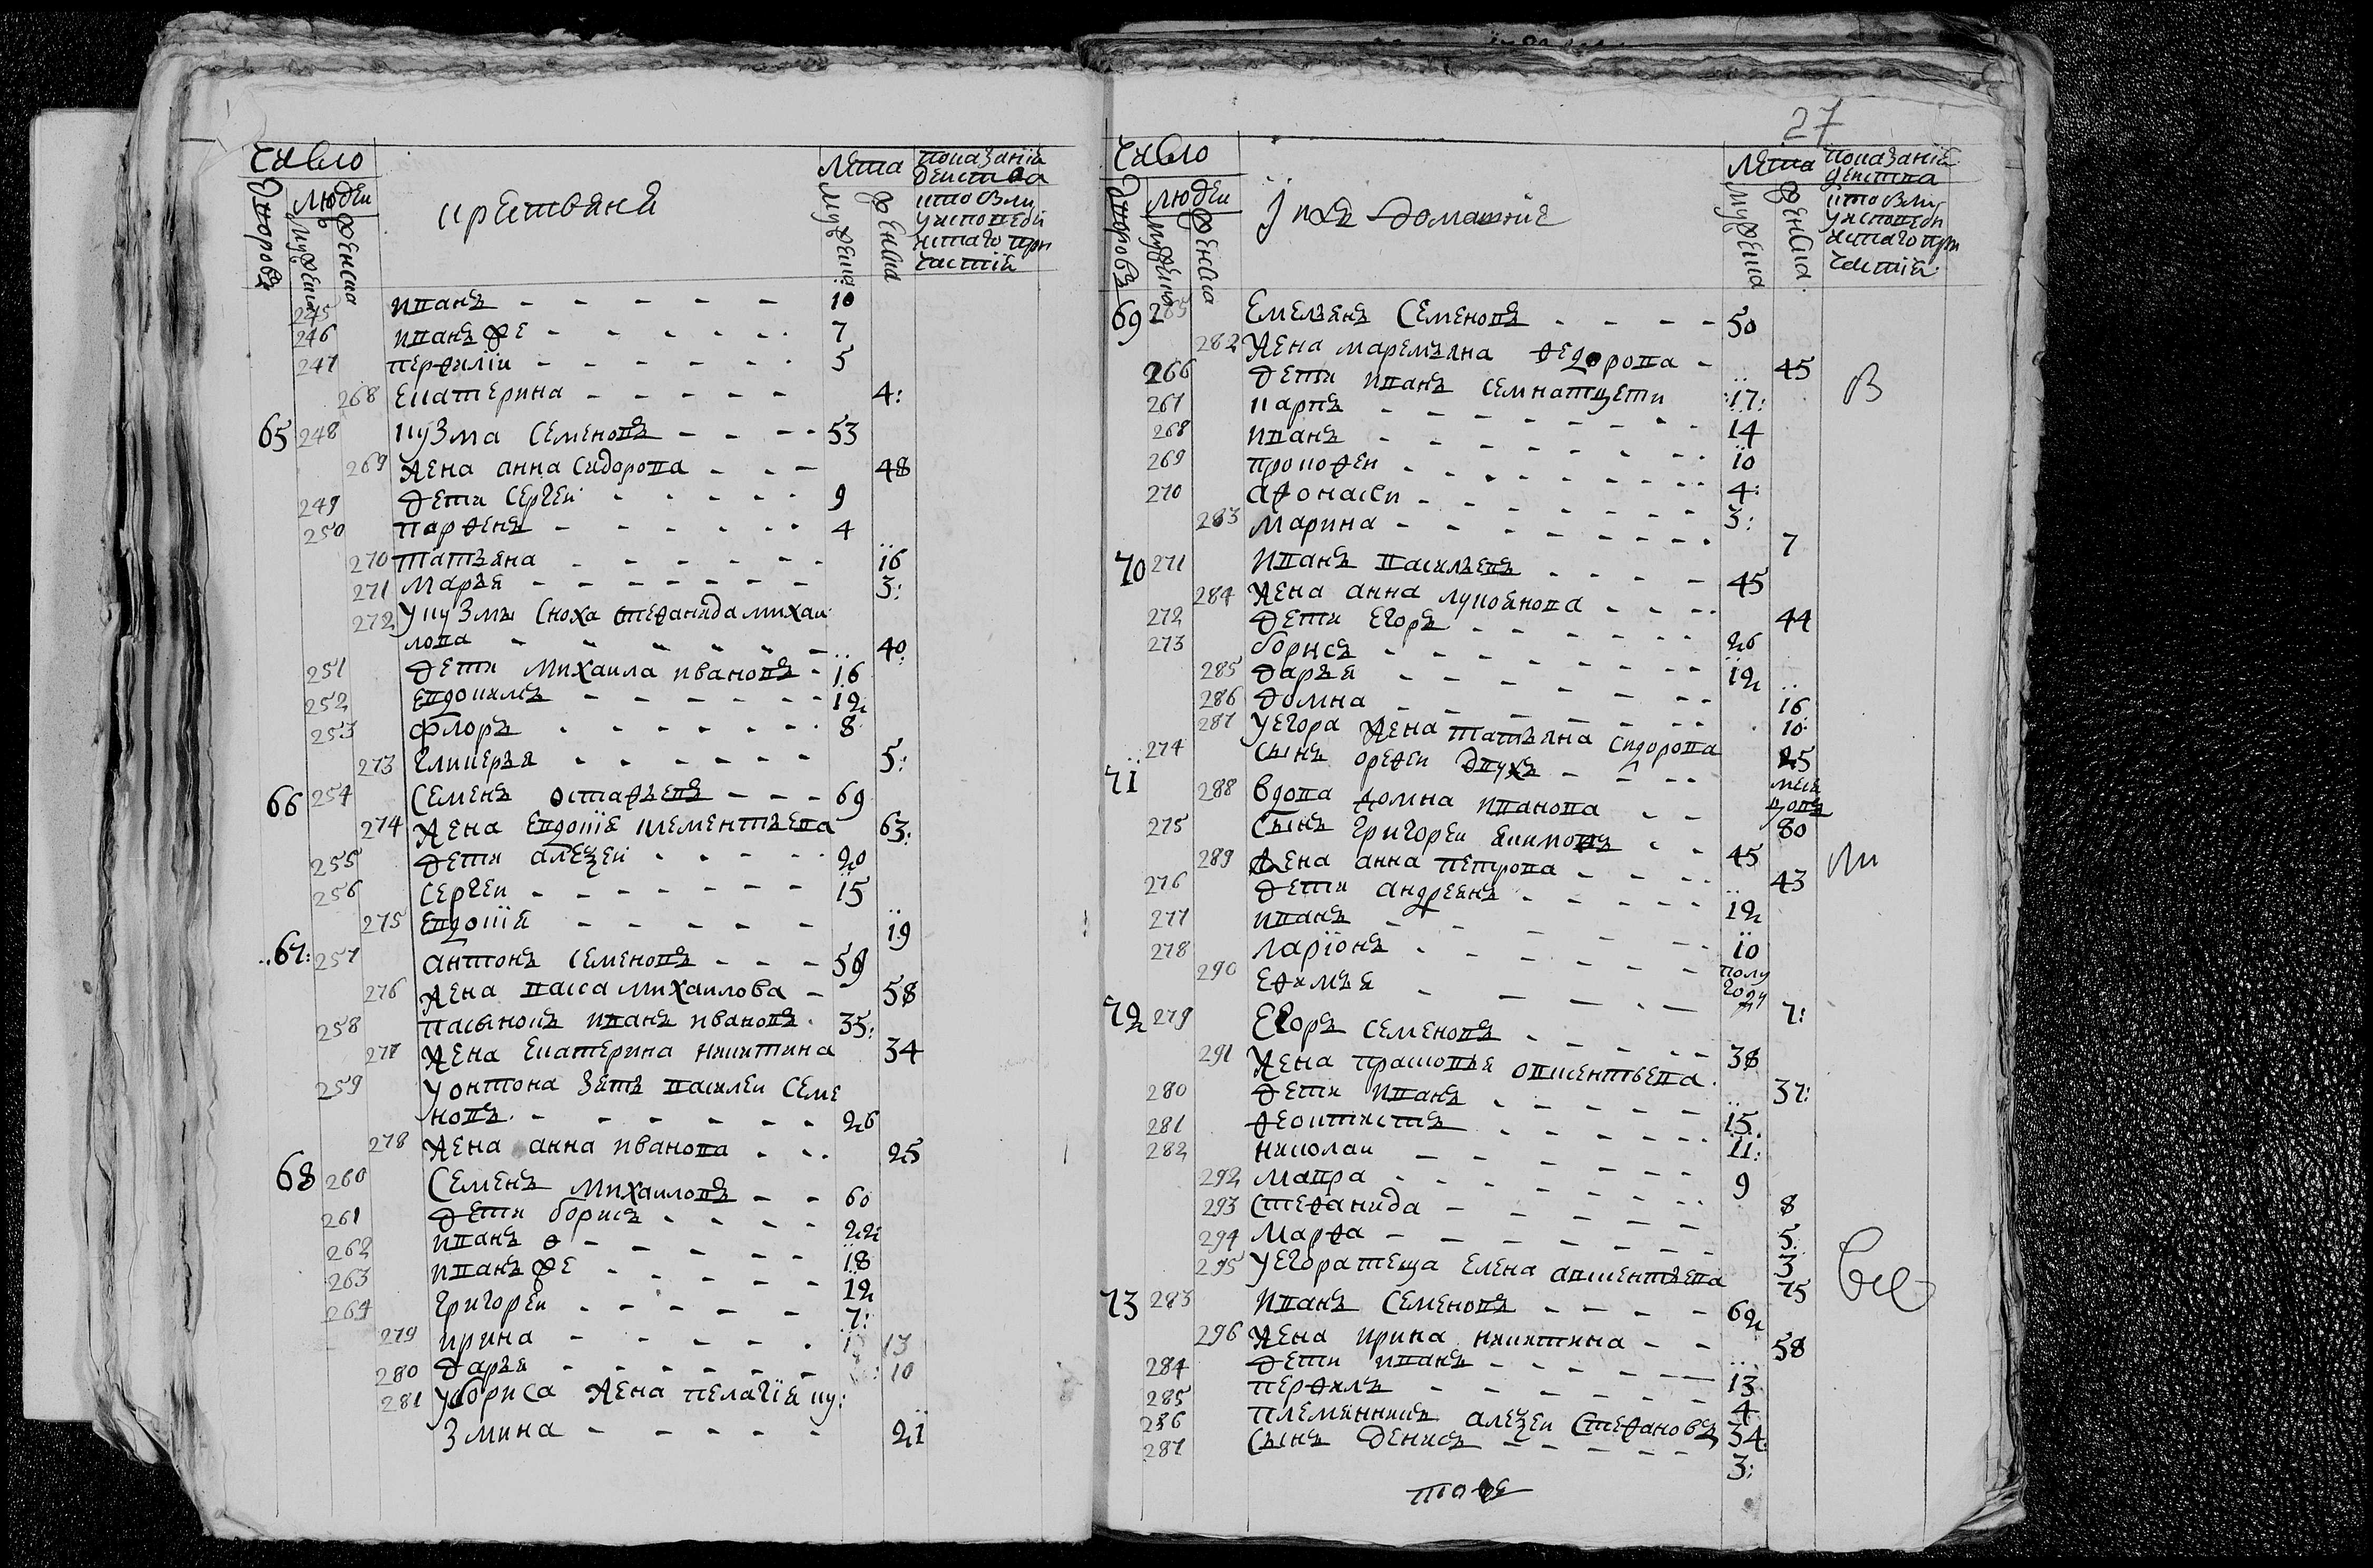 Число
Дворовъ
Людеи
Мужеска
Женска
крестьяня
Лета
Мужеска
Женска
показанiя
деиства
кто былъ
у исповеди
и стаго при
частiя
245 иванъ 10
246 иванъ же 7
247 перфилiи 5
268 Екатерина 4:
65 248 кузма Семеновъ 53
269 Жена анна Сидорова 48
249 дети Сергеи 9
250 парфенъ 4
270 татьяна 16
271 Марья 3:
272 у кузмы Сноха Стефанида михаи
лова 40:
251 дети Михаила ивановъ 16
252 Евдокимъ 12
253 флоръ 8
273 гликерья 5:
66 254 Семенъ остафьевъ 69
274 Жена Евдокiя клементьева 63:
255 дети алеѯеи 20
256 Сергеи 15
275 Евдокiя 19
67: 257 антонъ Семеновъ 59
276 Жена васса Михаилова 58
258 пасынокъ иванъ ивановъ 35:
277 Жена Екатерина никитина 34
259 у онтона зять василеи Семе
новъ 26
278 Жена анна иванова 25
68 260 Семенъ Михаиловъ 60
261 дети борисъ 22
262 иванъ 18
263 иванъ же 12
264 григореи 7:
279 ирина 13
280 дарья 10
281 у бориса Жена пелагiя ку:
змина 21
27
Число
Дворовъ
Людеи
Мужеска
Женска
I ихъ домашнiе
Лета
Мужеска
Женска
показанiя
деиства
кто былъ
у исповеди
и стаго при
частiя
69 265 Емельянъ Семеновъ 50
282 Жена маремьяна федорова 45
266 дети иванъ семнатцети 17:
267 карпъ 14
268 иванъ 10
269 прокофеи 4:
270 афонасеи 3:
283 Марина 7
70 271 иванъ васильевъ 45
284 Жена анна лукоянова 44
272 дети Егоръ 26
273 борисъ 12
285 дарья 16
286 домна 10
287 у Егора Жена татьяна Сидорова 25
274 Сынъ орефеи двухъ месяцовъ
71 288 вдова домна иванова 80
275 Сынъ григореи екимовъ 45
289 Жена анна петрова 43
276 дети андреянъ 12
277 иванъ 10
278 ларiонъ полу году
290 Ефимья 7:
72 279 Егоръ Семеновъ 38
291 Жена прасковья оксентьева 37:
280 дети иванъ 15
281 феоктистъ 11:
282 николаи 9
292 мавра 8
293 Стефанида 5
294 Марфа 3
295 у Егора теща Елена авксентьева 75
73 283 иванъ Семеновъ 62
296 Жена ирина никитина 58
284 дети иванъ 13
285 перфилъ 4
286 племянникъ алеѯеи Стефановъ 34
287 Сынъ денисъ 3:
В
ли
все
тоже